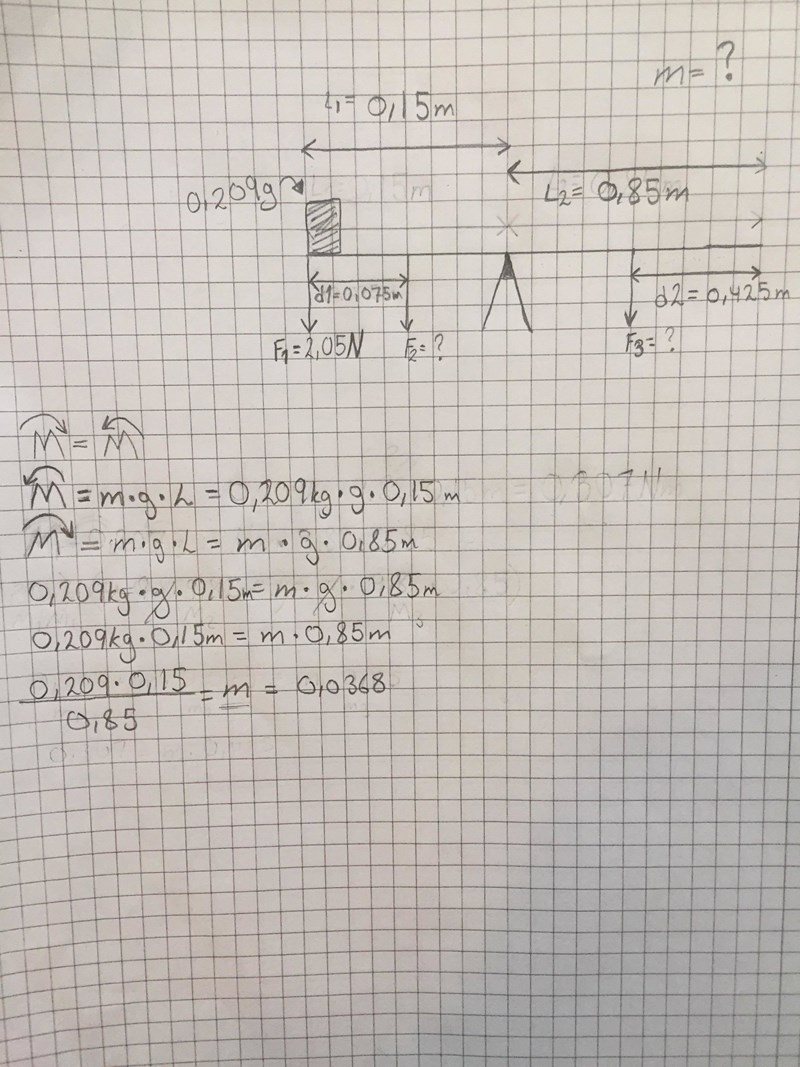 m = ?
L₁= 0,15m
0,209g
L₂= 0,85m
d1=0,075m
d2=0,425m
F₁=2,05N
F₂=?
F₃=?
M = M
M = m·g·L = 0,209kg·g·0,15m
M = m·g·L = m·g·0,85m
0,209kg·g·0,15m= m·g·0,85m
0,209kg·0,15m = m·0,85m
0,209·0,15
= m = 0,0368
0,85